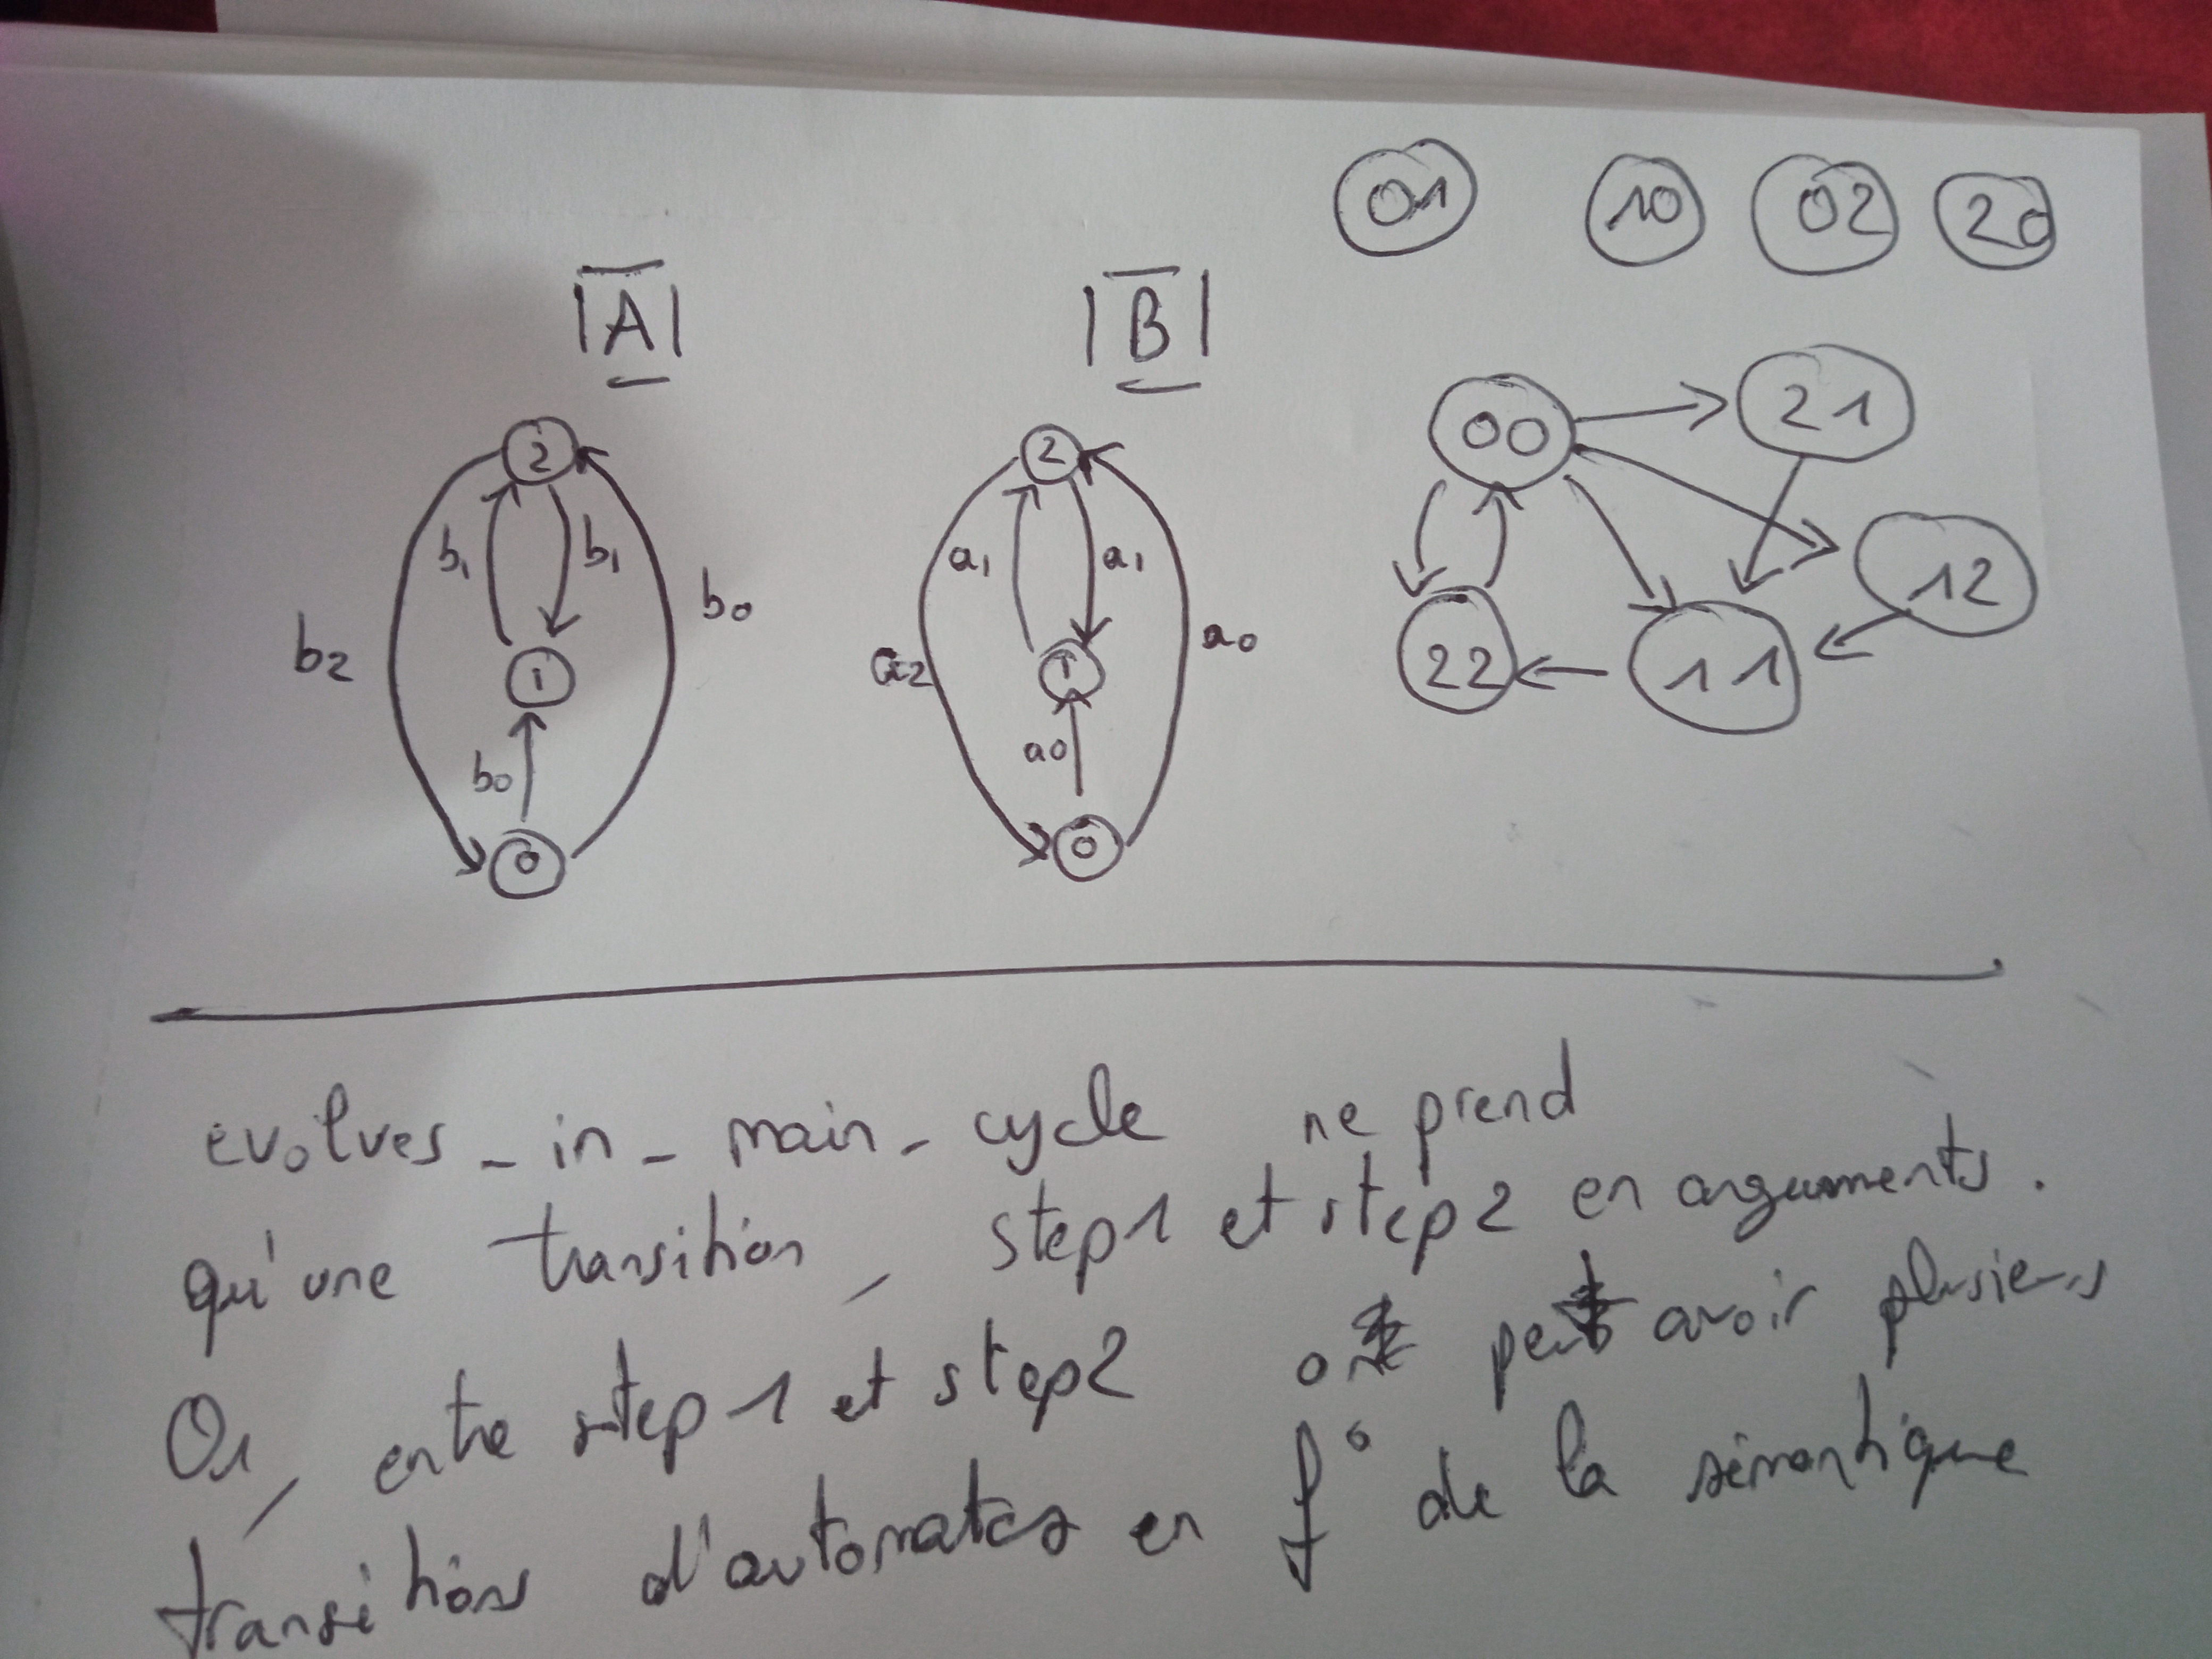 01 10 02 20
A B
00 21
2 2
b1 b1 a1 a1
12
b2 b0 a2 a0
1 1 22 11
b0 a0
0 0
evolves_in_main_cycle ne prend
qu'une transition, step1 et step2 en arguments.
Or, entre step1 et step2 on peut avoir plusieurs
transitions d'automates en f° de la sémantique